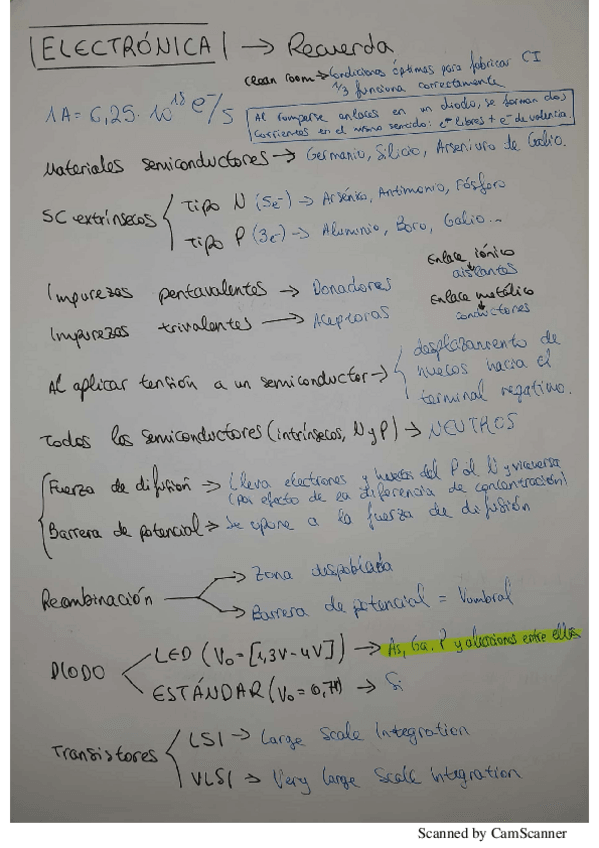 ELECTRÓNICA → Recuerda
clean room → Condiciones óptimas para fabricar CI
1/3 funciona correctamente
1A = 6,25 · 10^18 e⁻/s
Al romperse enlaces en un diodo, se forman dos
corrientes en el mismo sentido: e⁻ libres + e⁻ de valencia.
Materiales semiconductores → Germanio, Silicio, Arseniuro de Galio.
SC extrínsecos
Tipo N (5e⁻) → Arsénico, Antimonio, Fósforo
Tipo P (3e⁻) → Aluminio, Boro, Galio...
Enlace iónico
aislantes
Impurezas pentavalentes → Donadores
Enlace metálico
conductores
Impurezas trivalentes → Aceptoras
Al aplicar tensión a un semiconductor →
desplazamiento de
huecos hacia el
terminal negativo.
Todos los semiconductores (intrínsecos, N y P) → NEUTROS
Fuerza de difusión → Lleva electrones y huecos del P al N y viceversa
(por efecto de la diferencia de concentración)
Barrera de potencial → Se opone a la fuerza de difusión
Recombinación
→ Zona despoblada
→ Barrera de potencial = Vumbral
DIODO
LED (Vo = [1,3V-4V]) → As, Ga, P y aleaciones entre ellos
ESTÁNDAR (Vo = 0,7V) → Si
Transistores
LSI → Large Scale Integration
VLSI → Very large Scale integration
Scanned by CamScanner